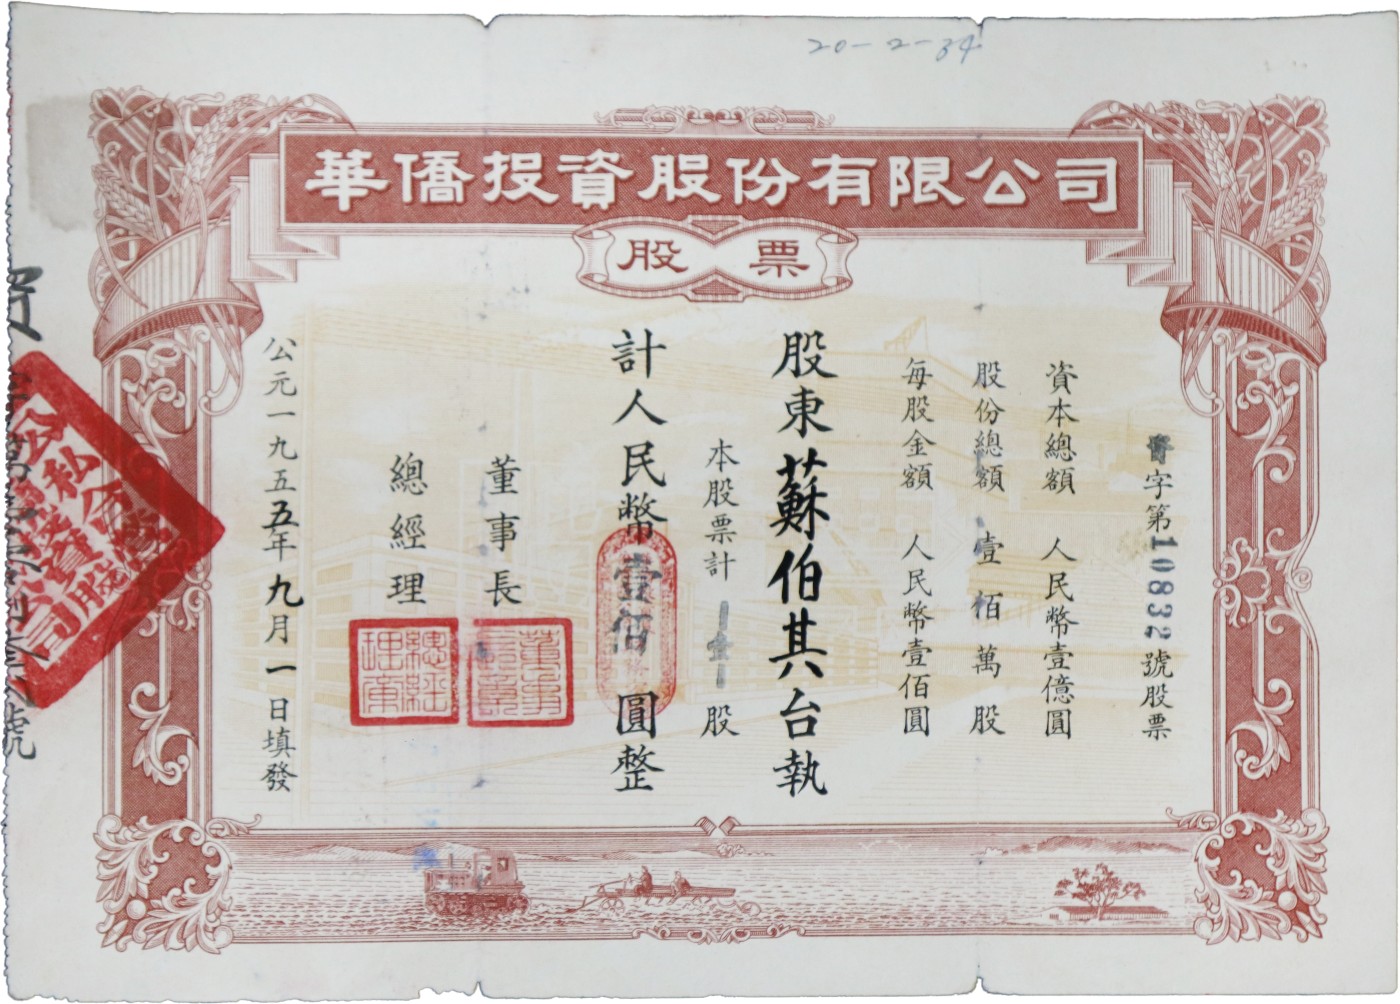 20-2-34
華僑投資股份有限公司
股票
字第10832號股票
資本總額 人民幣壹億圓
股份總額 壹佰萬股
每股金額 人民幣壹佰圓
股東蘇伯其台執
本股票計壹股
計人民幣壹佰圓整
董事長
總經理
公元一九五五年九月一日填發